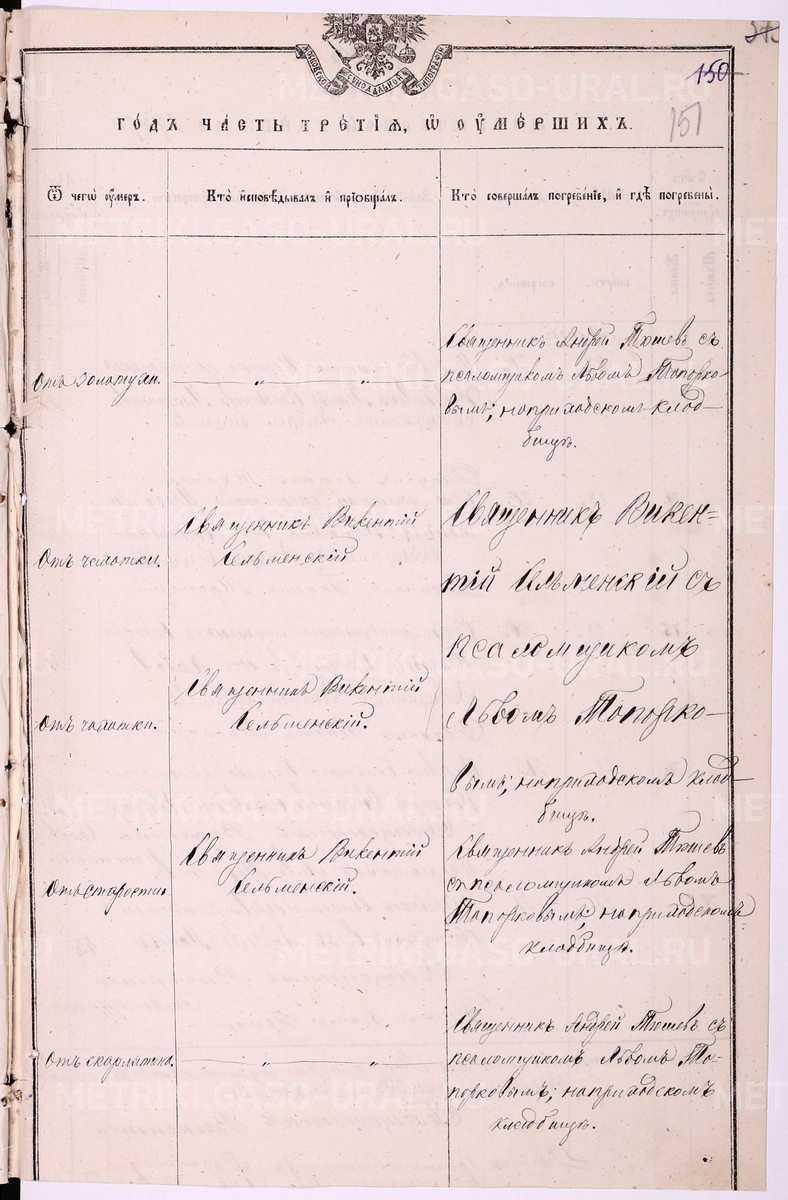 МОСКОВСКОЙ СѴНОДАЛЬНОЙ ТИПОГРАФІИ
150
151
ГОДЪ ЧАСТЬ ТРЕТІЯ, Ѿ ОУМЕРШИХЪ.
Ѿ чегѡ оумеръ.
Кто исповѣдывалъ и пріобщалъ.
Кто совершалъ погребеніе, и гдѣ погребены.
Отъ золотухи.
— „ — „ —
Священникъ Андрей Тюшевъ съ
псаломщикомъ Львомъ Топорко-
вымъ; на приходскомъ клад-
бищѣ.
Отъ чахотки.
Священникъ Викентій
Сельменскій
Священникъ Викен-
тій Сельменскій съ
псаломщикомъ
Львомъ Топорко-
вымъ; на приходскомъ клад-
бищѣ.
Отъ чахотки.
Священникъ Викентій
Сельменскій.
Отъ старости
Священникъ Викентій
Сельменскій.
Священникъ Андрей Тюшевъ
съ псаломщикомъ Львомъ
Топорковымъ; на приходскомъ
кладбищѣ.
Отъ скарлатины.
— „ — „ —
Священникъ Андрей Тюшевъ съ
псаломщикомъ Львомъ То-
порковымъ; на приходскомъ
кладбищѣ.
METRIKI.GASO-URAL.RU